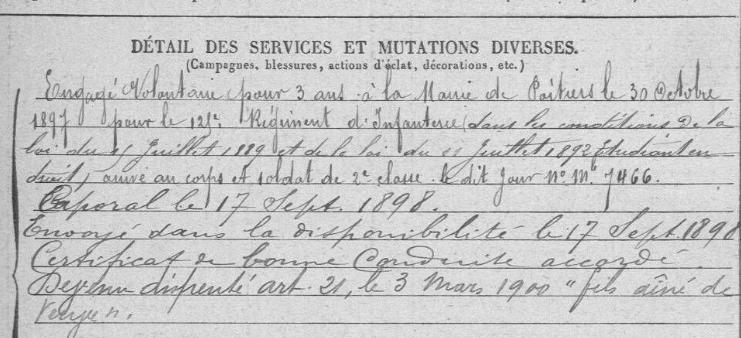 DÉTAIL DES SERVICES ET MUTATIONS DIVERSES.
(Campagnes, blessures, actions d'éclat, décorations, etc.)
Engagé Volontaire pour 3 ans à la Mairie de Poitiers le 30 Octobre
1897 pour le 125e Régiment d'Infanterie (dans les conditions de la
loi du 15 Juillet 1889 et de la loi du 11 Juillet 1892 Etudiant en
droit) arrivé au corps et soldat de 2e classe le dit jour No Mle 7466.
Caporal le 17 Sept. 1898.
Envoyé dans la disponibilité le 17 Sept. 1898
Certificat de bonne Conduite accordé.
Devenu dispensé art. 21, le 3 Mars 1900 " fils aîné de
veuve ".